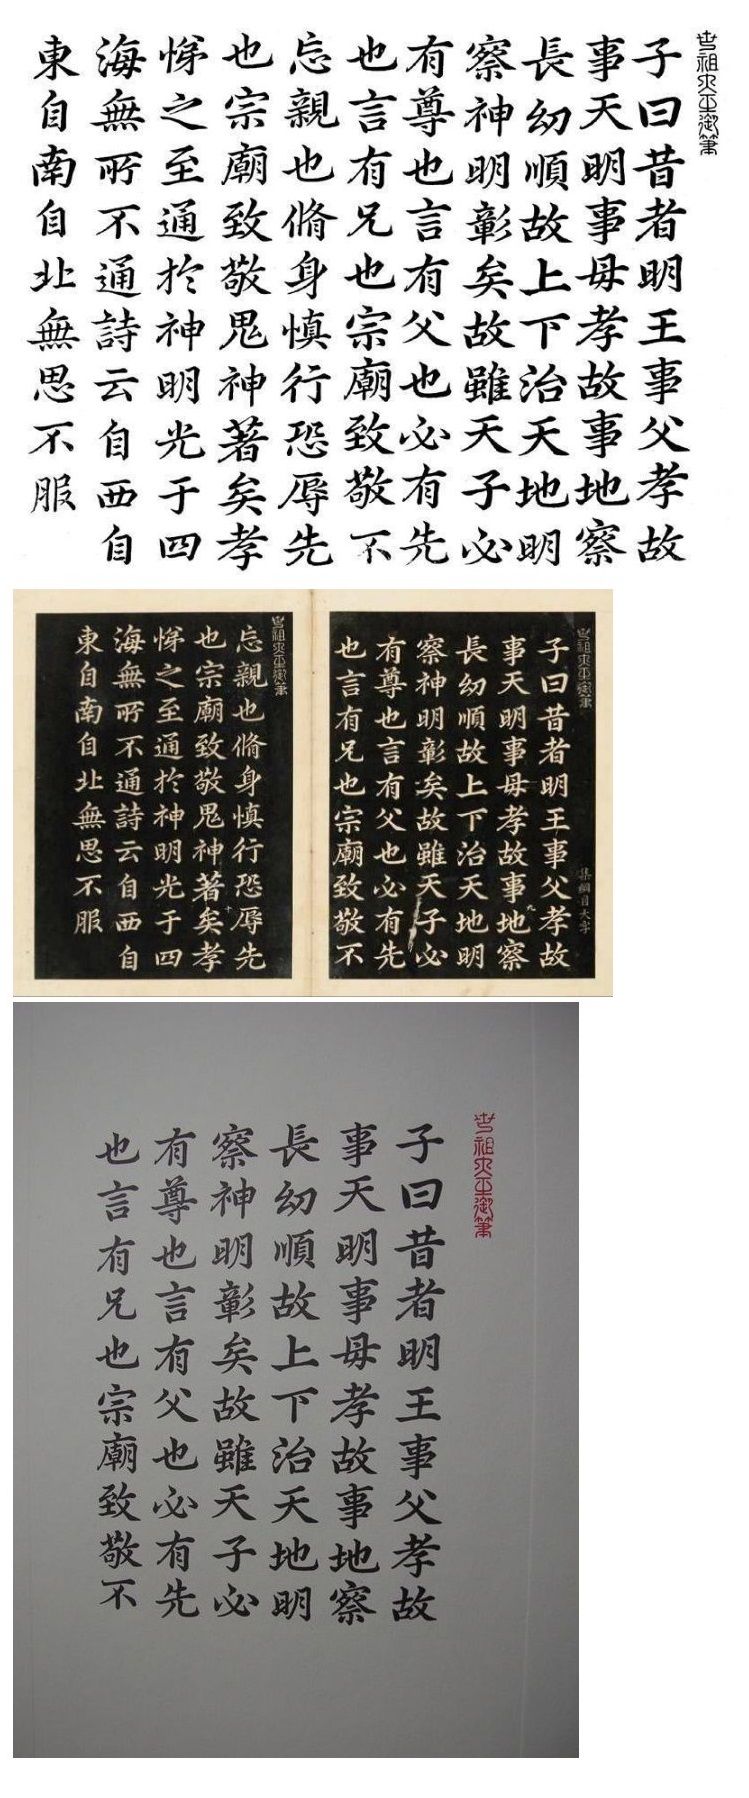 世祖大王御筆
子曰昔者明王事父孝故
事天明事母孝故事地察
長幼順故上下治天地明
察神明彰矣故雖天子必
有尊也言有父也必有先
也言有兄也宗廟致敬不
忘親也脩身慎行恐辱先
也宗廟致敬鬼神著矣孝
悌之至通於神明光于四
海無所不通詩云自西自
東自南自北無思不服
世祖大王御筆
集綱目大字
子曰昔者明王事父孝故
事天明事母孝故事地察
九
長幼順故上下治天地明
察神明彰矣故雖天子必
有尊也言有父也必有先
也言有兄也宗廟致敬不
世祖大王御筆
忘親也脩身慎行恐辱先
十
也宗廟致敬鬼神著矣孝
悌之至通於神明光于四
海無所不通詩云自西自
東自南自北無思不服
世祖大王御筆
子曰昔者明王事父孝故
事天明事母孝故事地察
長幼順故上下治天地明
察神明彰矣故雖天子必
有尊也言有父也必有先
也言有兄也宗廟致敬不